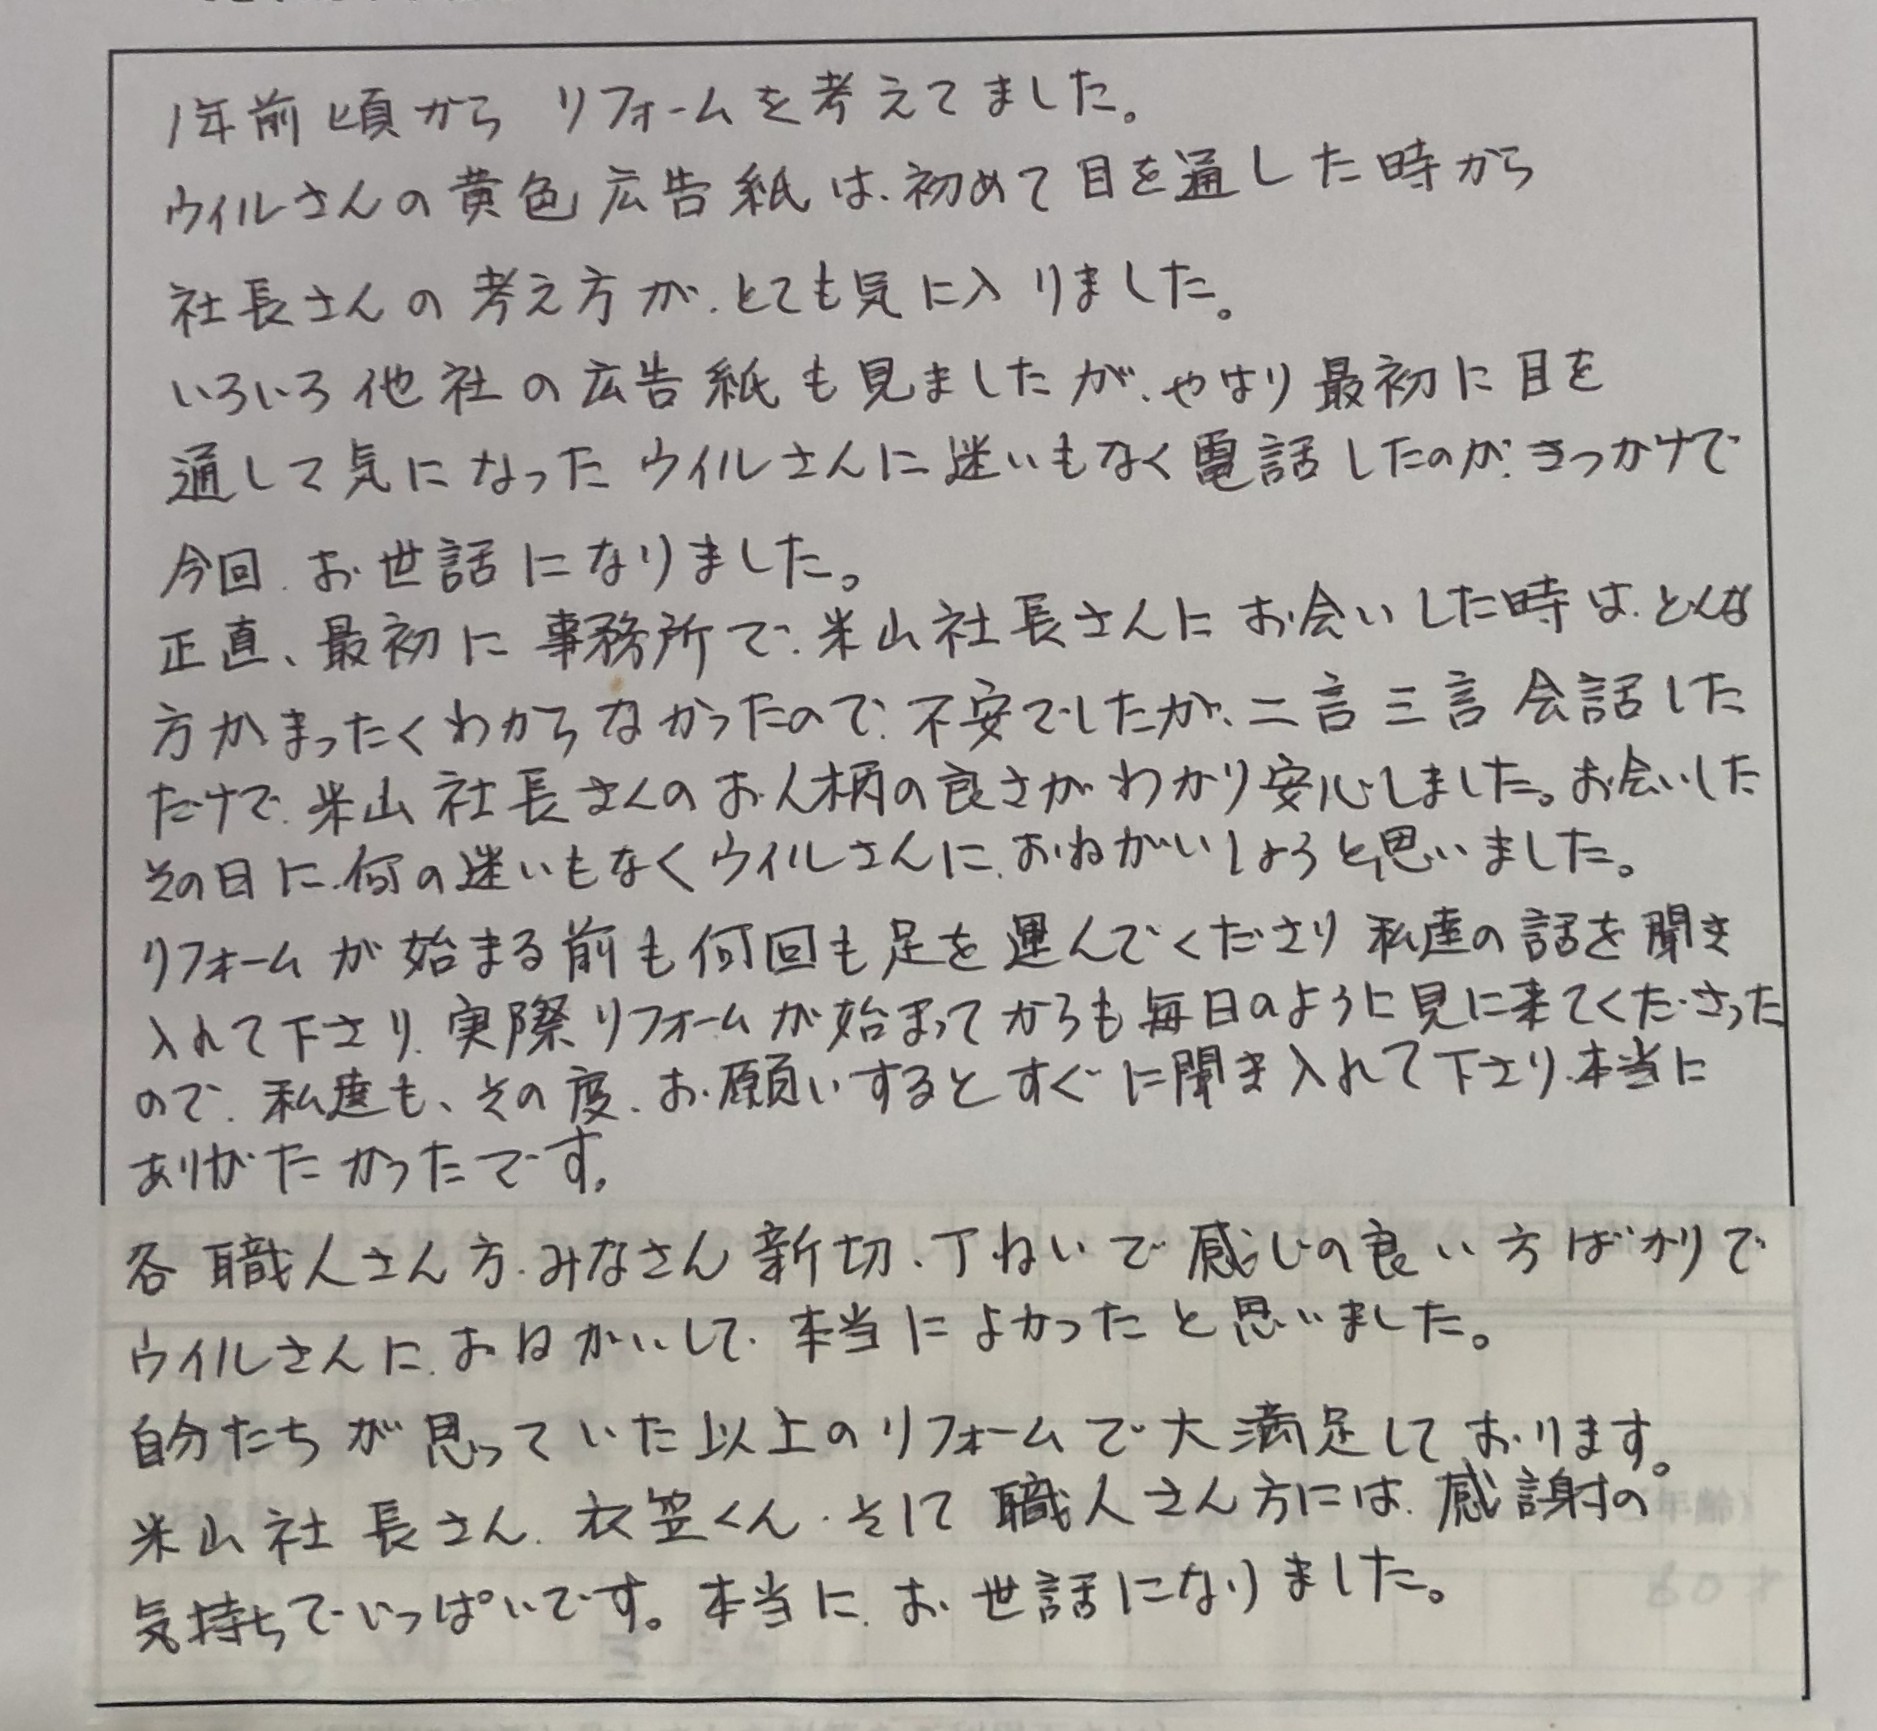 1年前頃から リフォームを考えてました。
ウィルさんの黄色広告紙は、初めて目を通した時から
社長さんの考え方が、とても気に入りました。
いろいろ他社の広告紙も見ましたが、やはり最初に目を
通して気になったウイルさんに迷いもなく電話したのが、きっかけで
今回、お世話になりました。
正直、最初に事務所で、米山社長さんにお会いした時は、どんな
方かまったくわからなかったので、不安でしたが、二言三言会話した
だけで、米山社長さんのお人柄の良さがわかり安心しました。お会いした
その日に、何の迷いもなくウイルさんに、おねがいしようと思いました。
リフォームが始まる前も何回も足を運んでくださり私達の話を聞き
入れて下さり、実際リフォームが始まってからも毎日のように見に来てくださった
ので、私達も、その度、お願いするとすぐに聞き入れて下さり、本当に
ありがたかったです。
各職人さん方、みなさん新切、丁ねいで感じの良い方ばかりで
ウイルさんに、おねがいして、本当によかったと思いました。
自分たちが思っていた以上のリフォームで大満足しております。
米山社長さん、衣笠くん、そして職人さん方には、感謝の
気持ちでいっぱいです。本当に、お世話になりました。